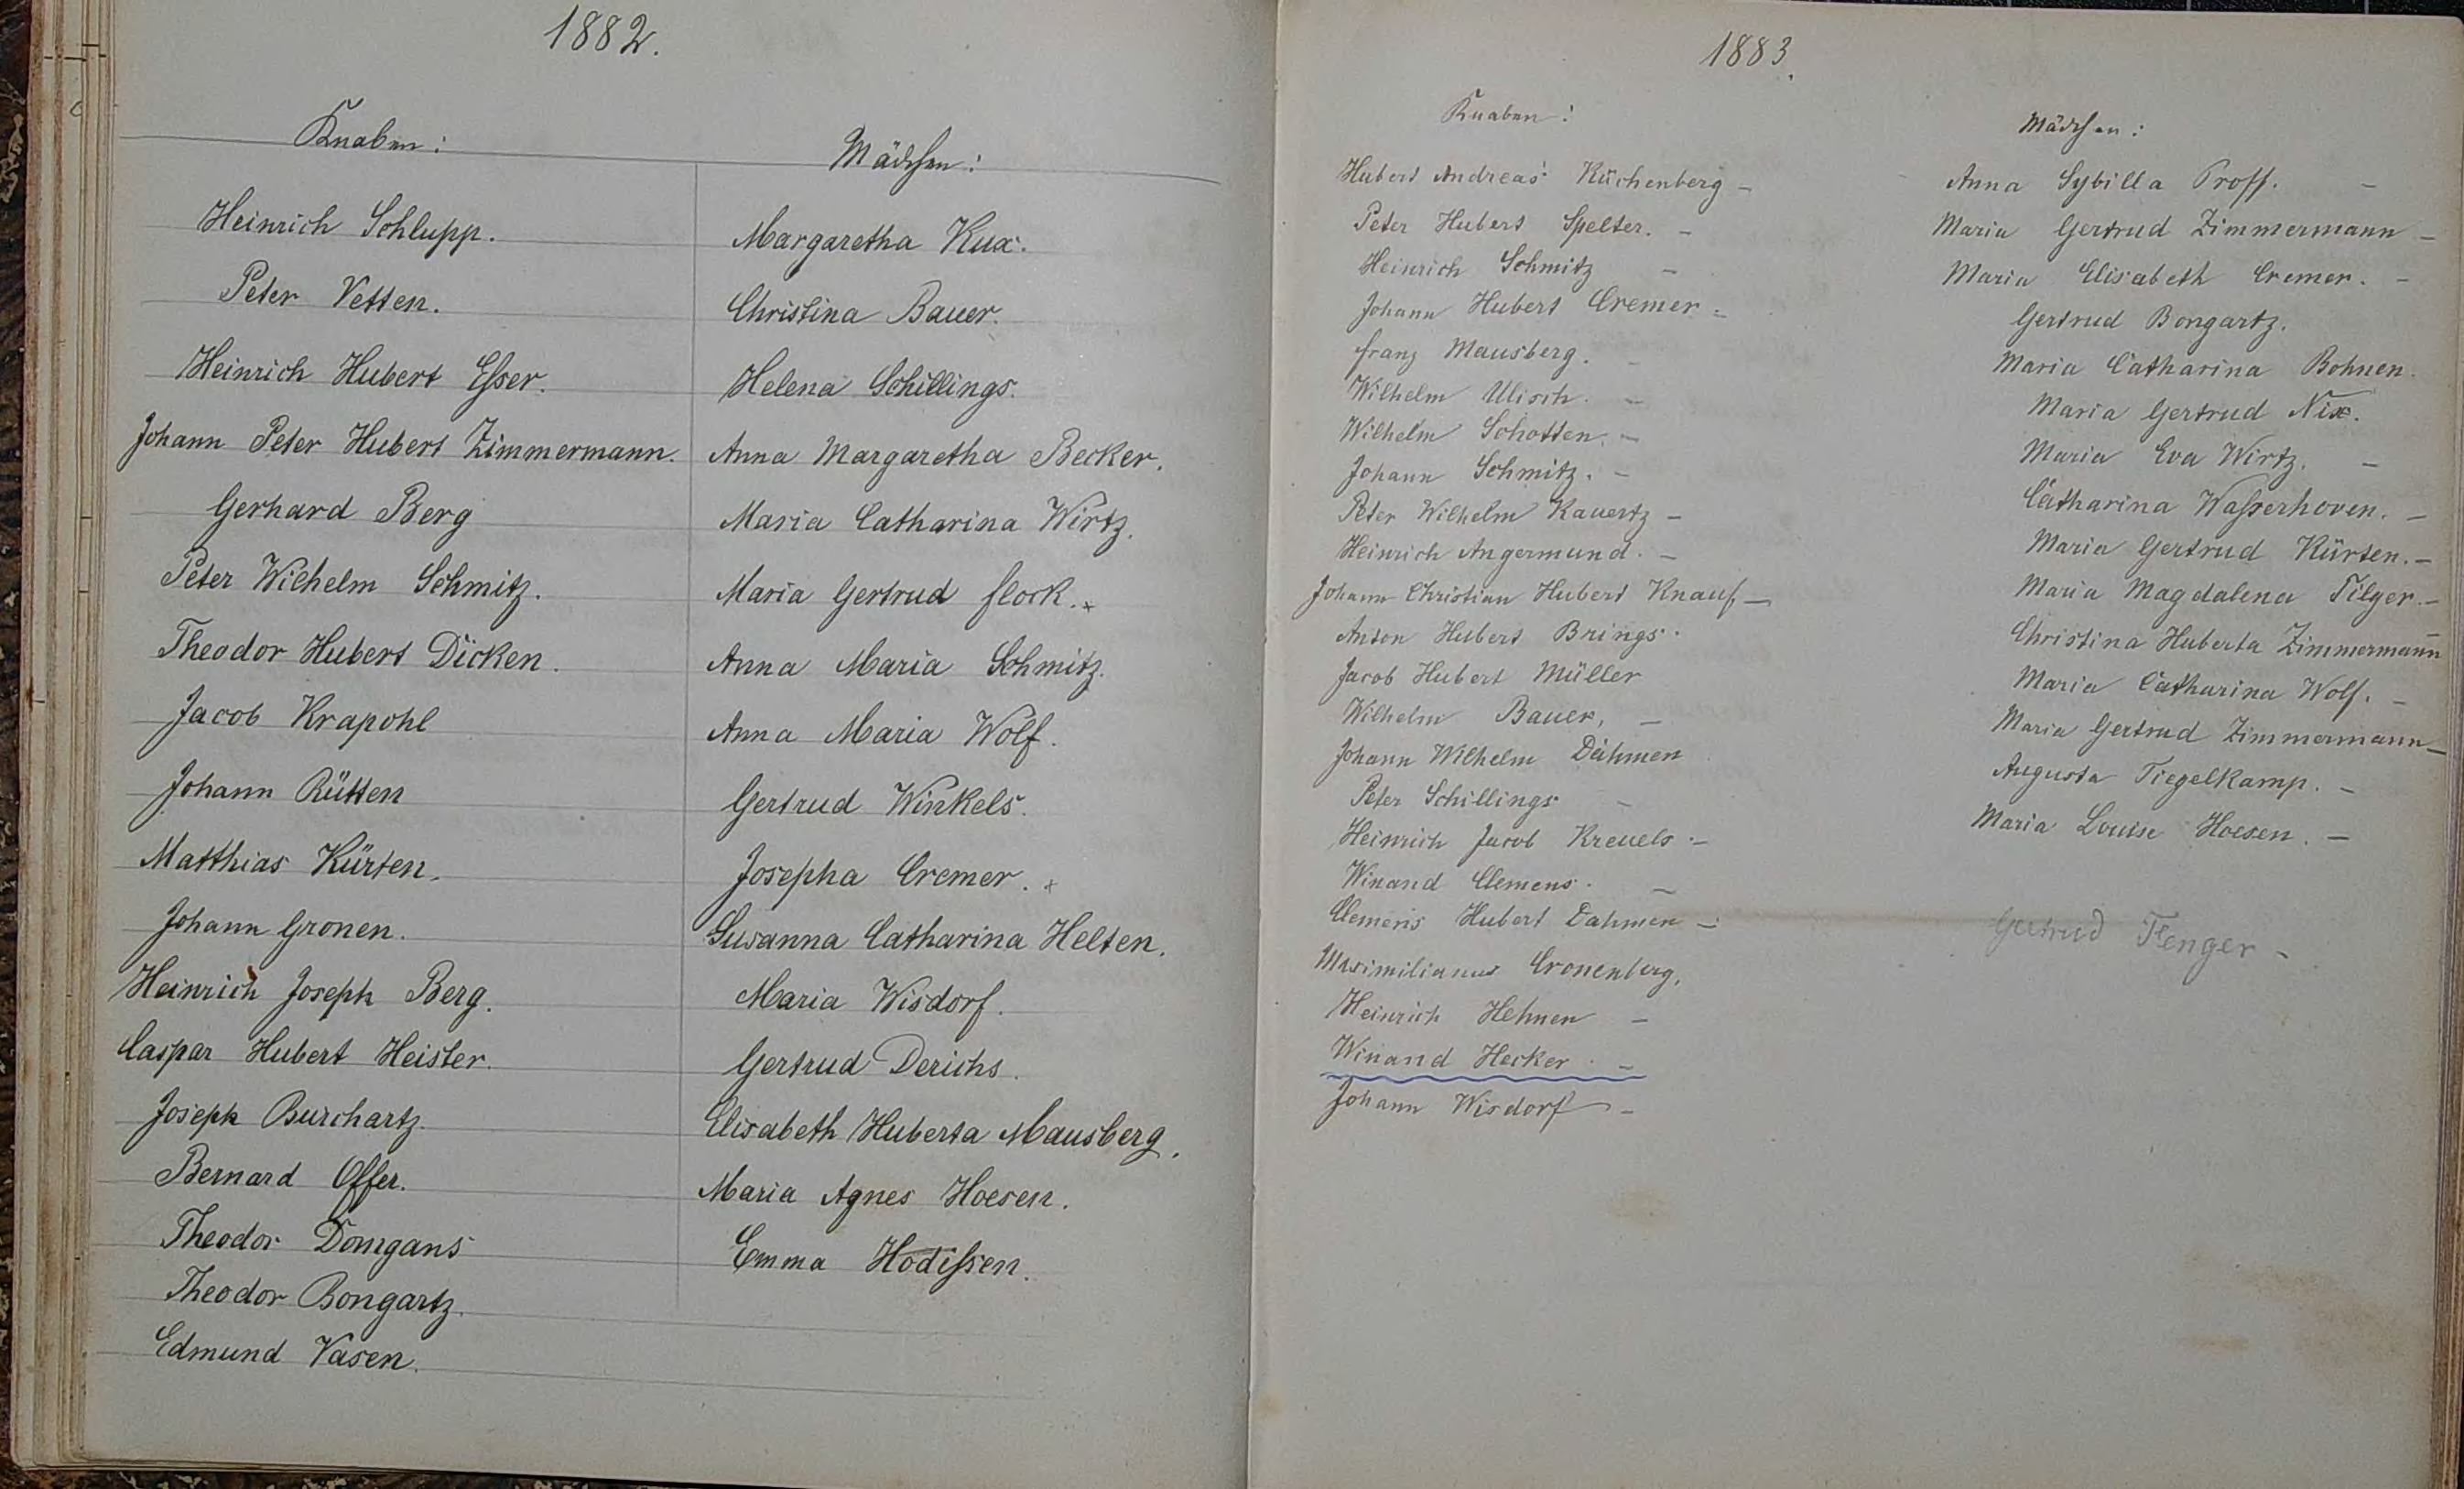 1882.
Knaben:
Heinrich Schlupp.
Peter Vetten.
Heinrich Hubert Esser.
Johann Peter Hubert Zimmermann.
Gerhard Berg
Peter Wilhelm Schmitz.
Theodor Hubert Dicken.
Jacob Krapohl
Johann Rütten
Matthias Kürten.
Johann Gronen.
Heinrich Joseph Berg.
Caspar Hubert Heister.
Joseph Burchartz.
Bernard Offer.
Theodor Domgans
Theodor Bongartz.
Edmund Vasen.
Mädchen:
Margaretha Kux.
Christina Bauer.
Helena Schillings.
Anna Margaretha Becker.
Maria Catharina Wirtz.
Maria Gertrud Flock. +
Anna Maria Schmitz.
Anna Maria Wolf.
Gertrud Winkels.
Josepha Cremer. +
Susanna Catharina Helten.
Maria Wisdorf.
Gertrud Derichs.
Elisabeth Huberta Mausberg.
Maria Agnes Hoesen.
Emma Hodissen.
1883.
Knaben:
Hubert Andreas Küchenberg -
Peter Hubert Spelter. -
Heinrich Schmitz -
Johann Hubert Cremer -
Franz Mausberg. -
Wilhelm Ulisch. -
Wilhelm Schotten. -
Johann Schmitz. -
Peter Wilhelm Kauertz -
Heinrich Angermund. -
Johann Christian Hubert Knauf -
Anton Hubert Brings.
Jacob Hubert Müller
Wilhelm Bauer, -
Johann Wilhelm Dahmen
Peter Schillings -
Heinrich Jacob Kreuels -
Winand Clemens. -
Clemens Hubert Dahmen -
Maximilianus Cronenberg.
Heinrich Hehnen -
Winand Hecker. -
Johann Wisdorf -
Mädchen:
Anna Sybilla Proff. -
Maria Gertrud Zimmermann -
Maria Elisabeth Cremer. -
Gertrud Bongartz.
Maria Catharina Bohnen.
Maria Gertrud Nix.
Maria Eva Wirtz. -
Catharina Wasserhoven. -
Maria Gertrud Kürten. -
Maria Magdalena Filger. -
Christina Huberta Zimmermann -
Maria Catharina Wolf. -
Maria Gertrud Zimmermann -
Augusta Tiegelkamp. -
Maria Louise Hoesen. -
Gertrud Flenger -